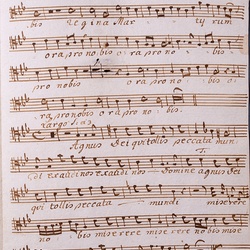 bis Regina Mar tyrum
ora pro nobis ora pro no bis
pro nobis ora pro no bis
ra pro nobis ora pro no bis.
Largo
Agnus Dei qui tollis peccata mun
Domine agnus Dei
qui tollis peccata mundi miserere
no bis miserere miserere nobis mise